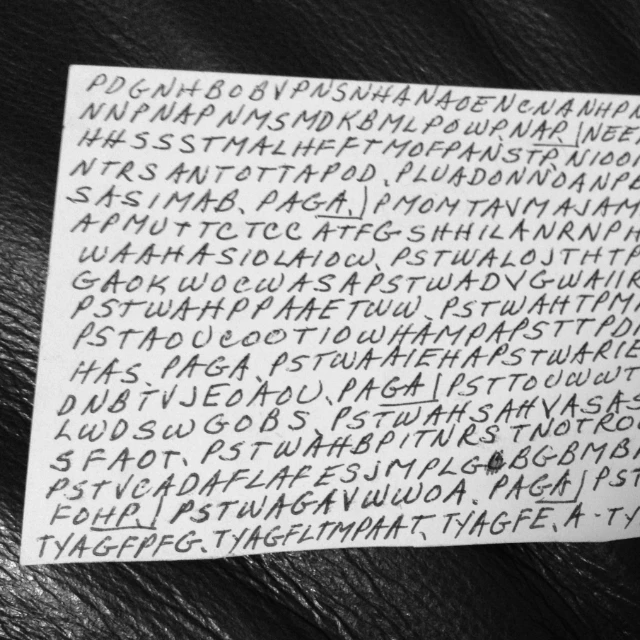 PDGNHBOBVPNSNHANAOENCNANHPD
NNPNAPNMSMDKBMLPOWPNAP.|NEE
HHSSSTMALHFFTMOFPANSTP.NIOO
NTRSANTOTTAPOD.PLUADONNOANP
SASIMAB.PAGA.|PMOMTAVMAJAM
APMUTTCTCCATFGSHHILANRNPH
WAAHASIOLAIOW.PSTWALOJTHTP
GAOKWOCWASAPSTWADVGWAIIR
PSTWAHPPAAETWW.PSTWAHTPM
PSTAOUCOOTIOWHAMPAPSTTPD
HAS.PAGA.PSTWAAIEHAPSTWARIE
DNBTVJEOAOU.PAGA|PSTTOUWWT
LWDSWGOBS.PSTWAHSAHVASAS
SFAOT.PSTWAHBPITNRSTNOTRO
PSTVCADAFLAFESJMPLG BGBMB
FOHP.|PSTWAGAVWWOA.PAGA|PST
TYAGFPFG.TYAGFLTMPAAT.TYAGFE.A-TY